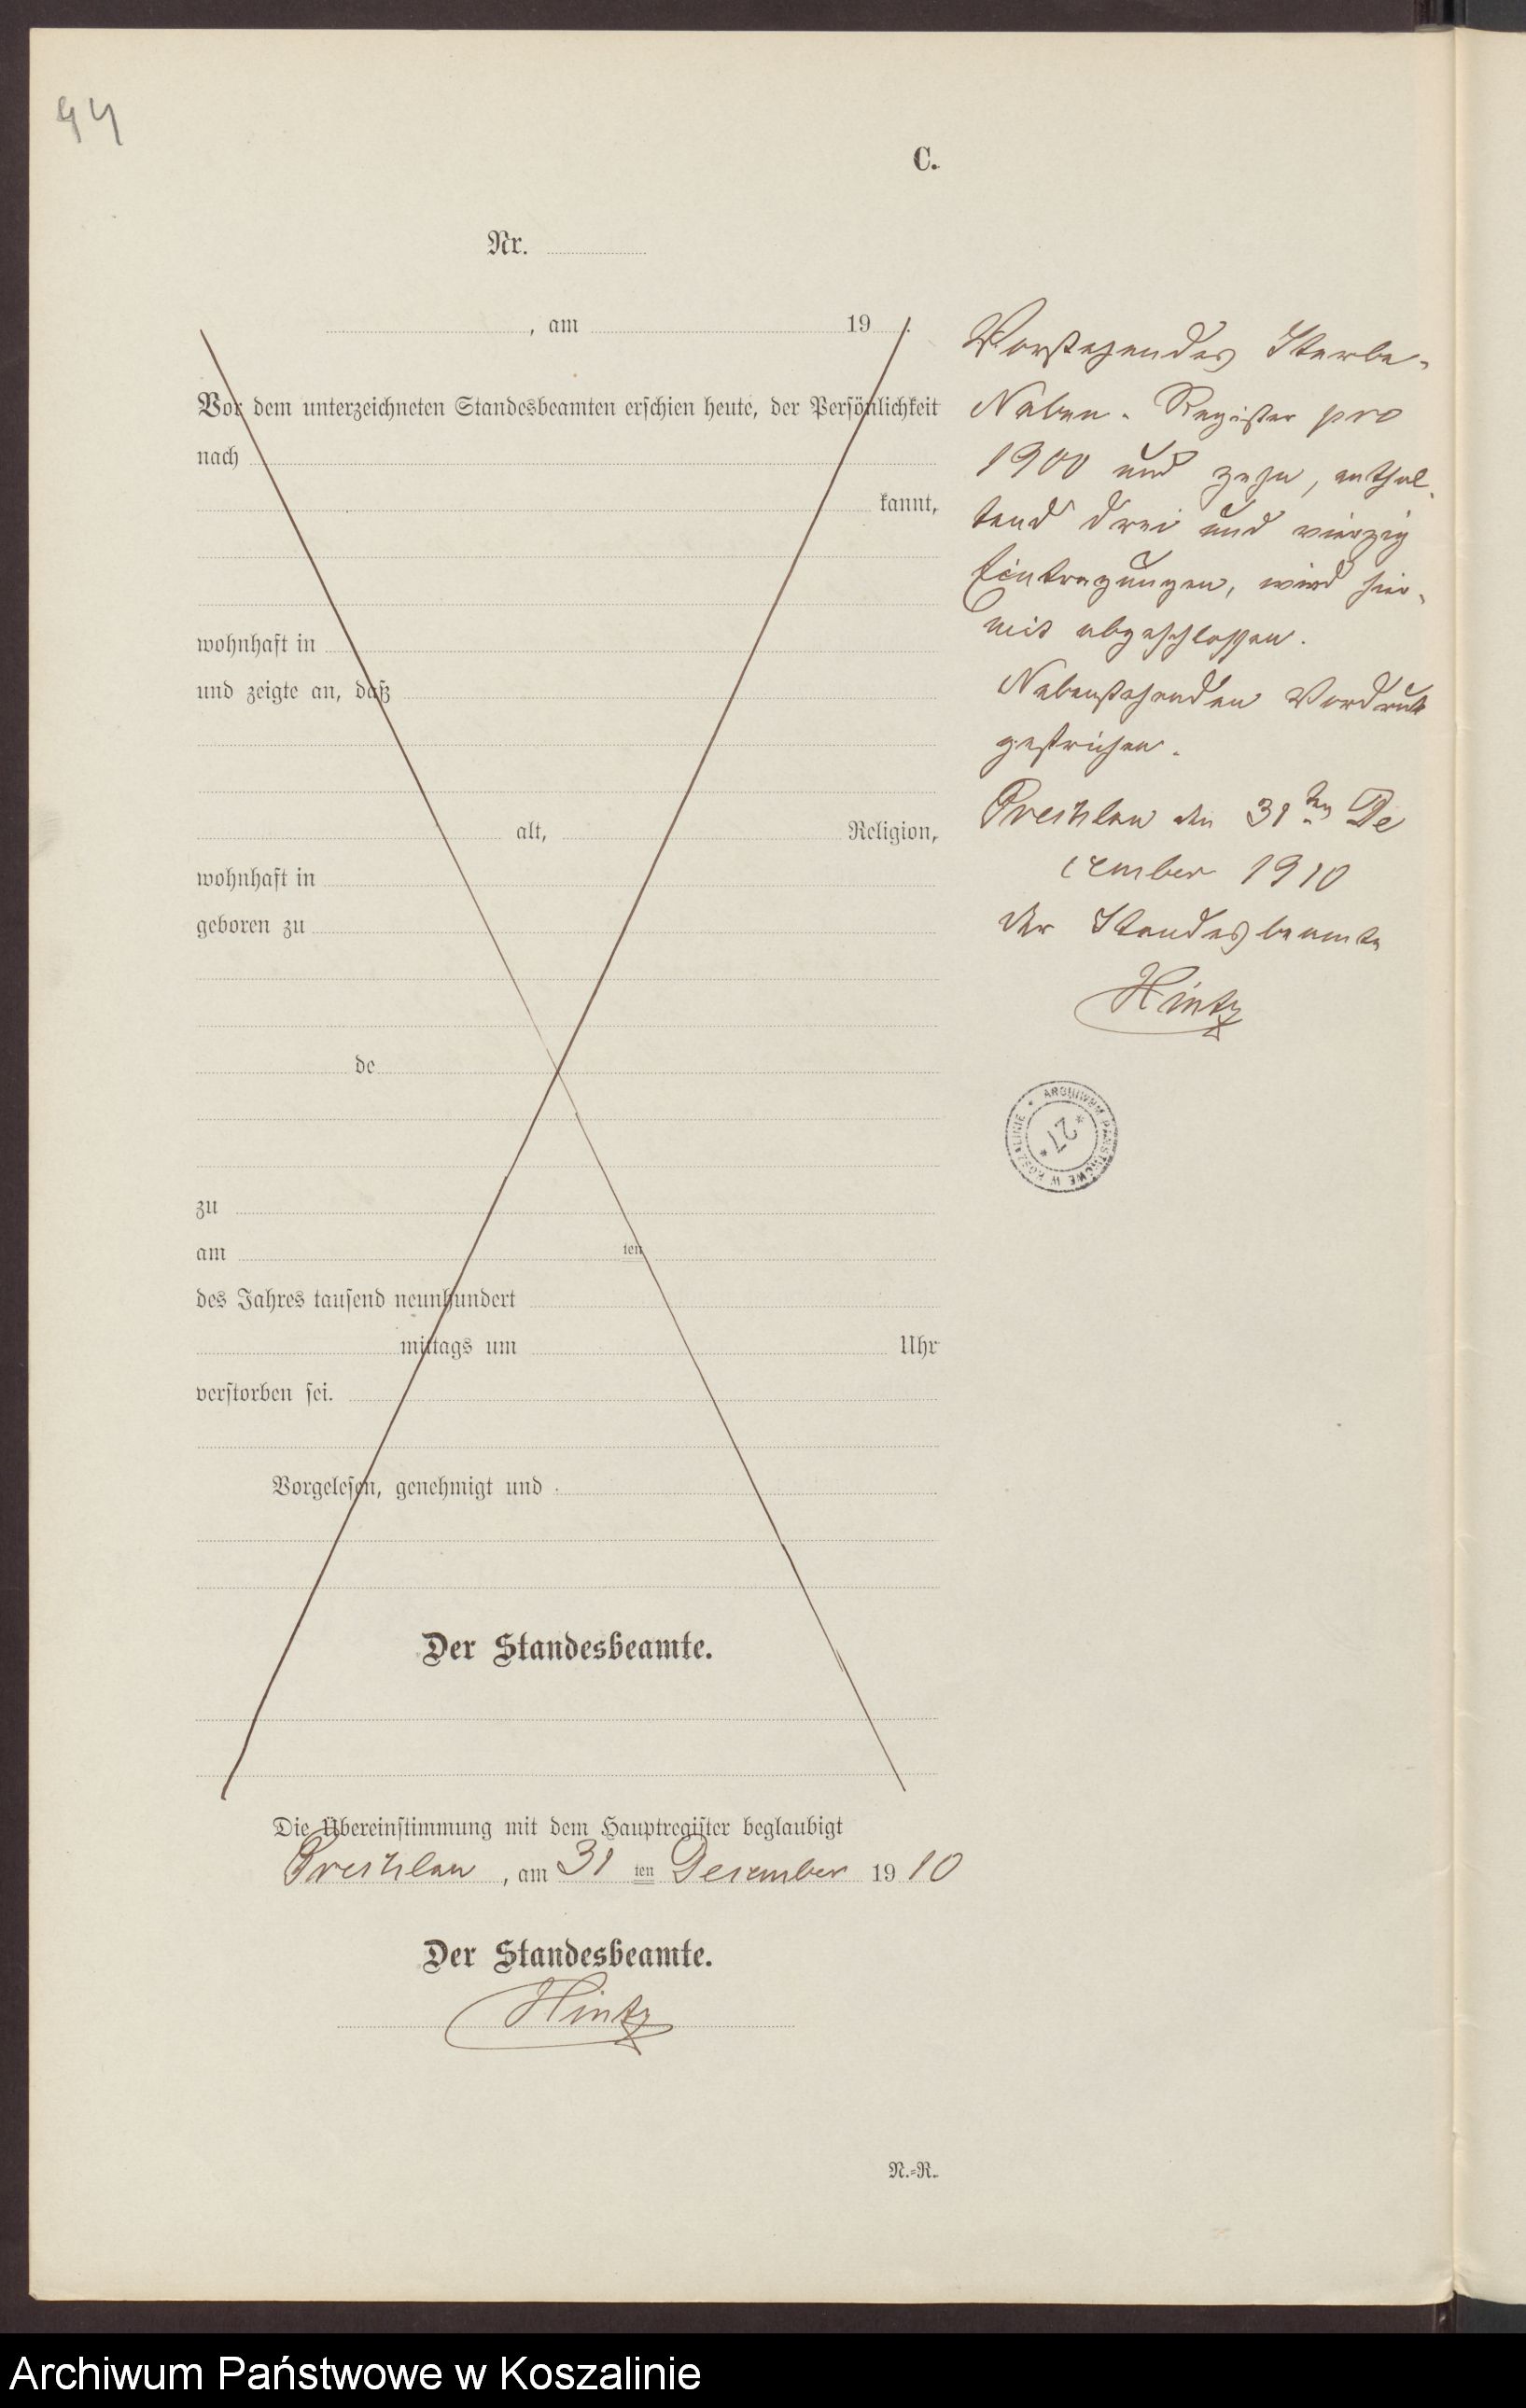 44
C.
Nr.
, am 19 .
Vor dem unterzeichneten Standesbeamten erschien heute, der Persönlichkeit
nach
kannt,
wohnhaft in
und zeigte an, daß
alt, Religion,
wohnhaft in
geboren zu
de
zu
am ten
des Jahres tausend neunhundert
mittags um Uhr
verstorben sei.
Vorgelesen, genehmigt und
Der Standesbeamte.
Die Übereinstimmung mit dem Hauptregister beglaubigt
Prechlau, am 31 ten Dezember 1910
Der Standesbeamte.
Hintz
N.-R.
Vorstehendes Sterbe-
Neben-Register pro
1900 und zehn, enthal-
tend drei und vierzig
Eintragungen, wird hier-
mit abgeschlossen.
Nebenstehenden Vordruck
gestrichen.
Prechlau den 31ten De
cember 1910
der Standesbeamte
Hintz
ARCHIWUM PAŃSTWOWE W KOSZALINIE
* 27 *
Archiwum Państwowe w Koszalinie